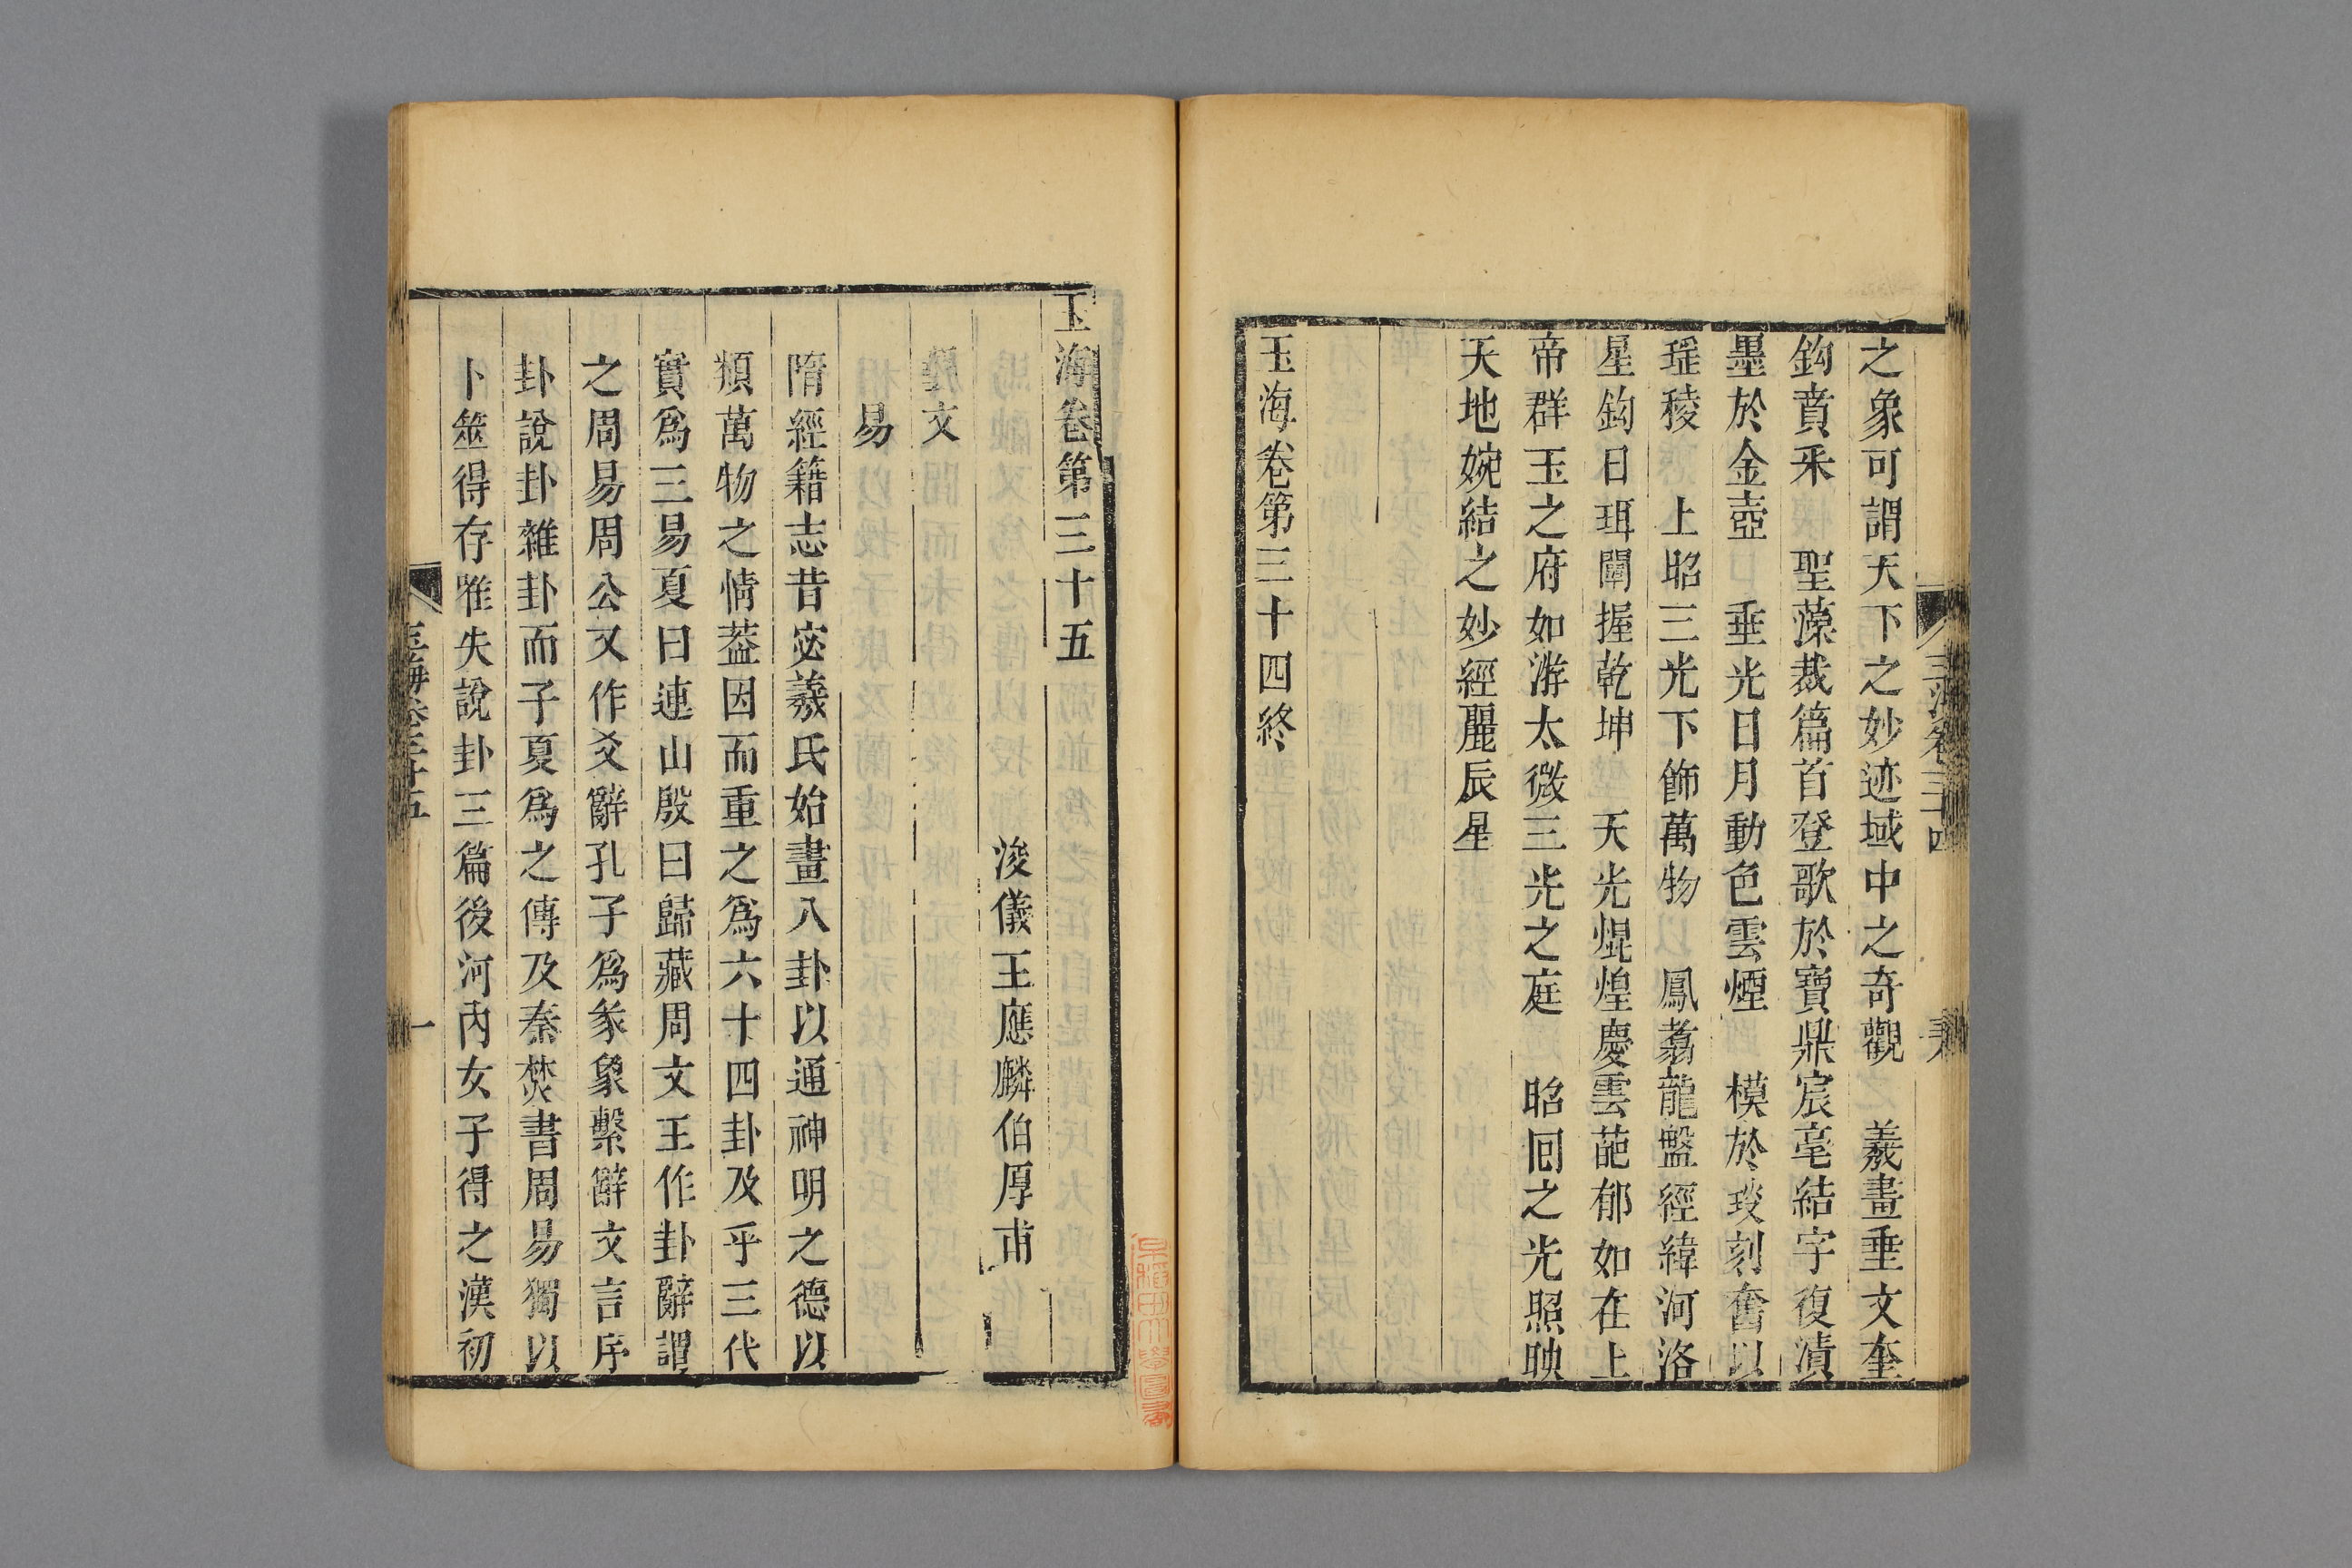 之象可謂天下之妙迹域中之奇觀　羲畫垂文奎
鈎賁釆　聖藻裁篇首登歌於寶鼎宸毫結字復漬
墨於金壺　垂光日月動色雲煙　模於琰刻奮以
瑶稜　上昭三光下飾萬物　鳳翥龍盤徑緯河洛
星鈎日珥闡握乾坤　天光焜煌慶雲葩郁如在上
帝群玉之府如游太微三光之庭　昭囘之光照映
天地婉結之妙經麗辰星
玉海卷第三十四終
玉海卷第三十五
浚儀王應麟伯厚甫
藝文
易
隋經籍志昔宓羲氏始畫八卦以通神明之德以
類萬物之情葢因而重之爲六十四卦及乎三代
實爲三易夏曰連山殷曰歸藏周文王作卦辭謂
之周易周公又作爻辭孔子爲彖象繫辭文言序
卦說卦雜卦而子夏爲之傳及秦焚書周易獨以
卜筮得存唯失說卦三篇後河內女子得之漢初
玉海卷三十五
一